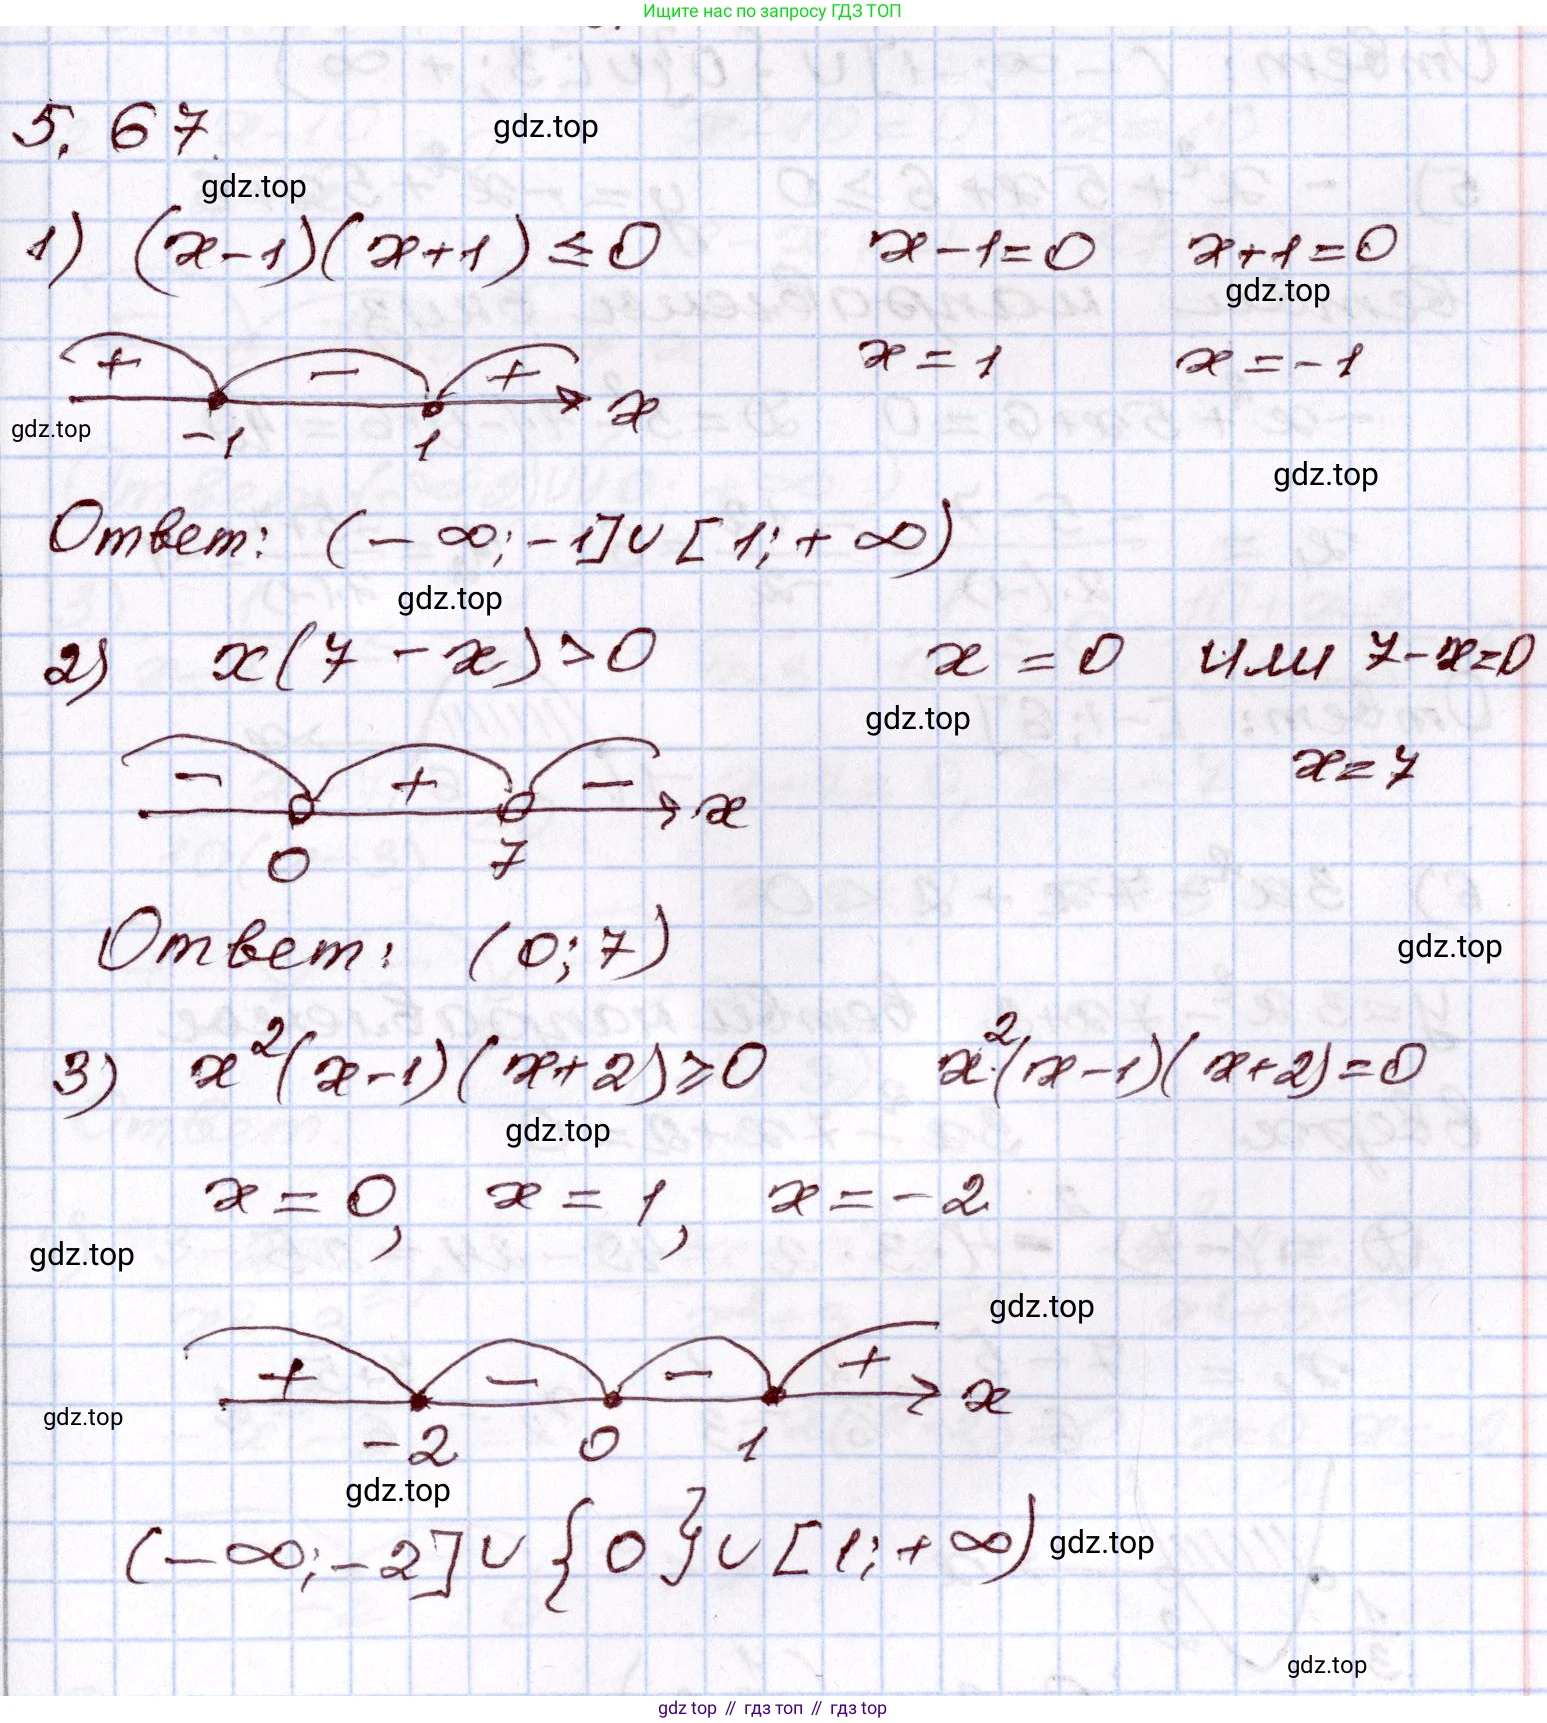 Ищите нас по запросу ГДЗ ТОП
5.67.
gdz.top
gdz.top
1) (x-1)(x+1) ≤ 0 x-1=0 x+1=0
gdz.top
x = 1 x = -1
+ - + x
gdz.top
-1 1
gdz.top
Ответ: (-∞; -1] ∪ [1; +∞)
gdz.top
2) x(7-x) > 0 x = 0 или 7-x=0
gdz.top
x=7
- + - x
0 7
Ответ: (0; 7)
gdz.top
3) x²(x-1)(x+2) ≥ 0 x²(x-1)(x+2) = 0
gdz.top
x = 0, x = 1, x = -2
gdz.top
gdz.top
+ - - + x
gdz.top
-2 0 1
gdz.top
(-∞; -2] ∪ {0} ∪ [1; +∞)
gdz.top
gdz.top
gdz top // гдз топ // гдз top